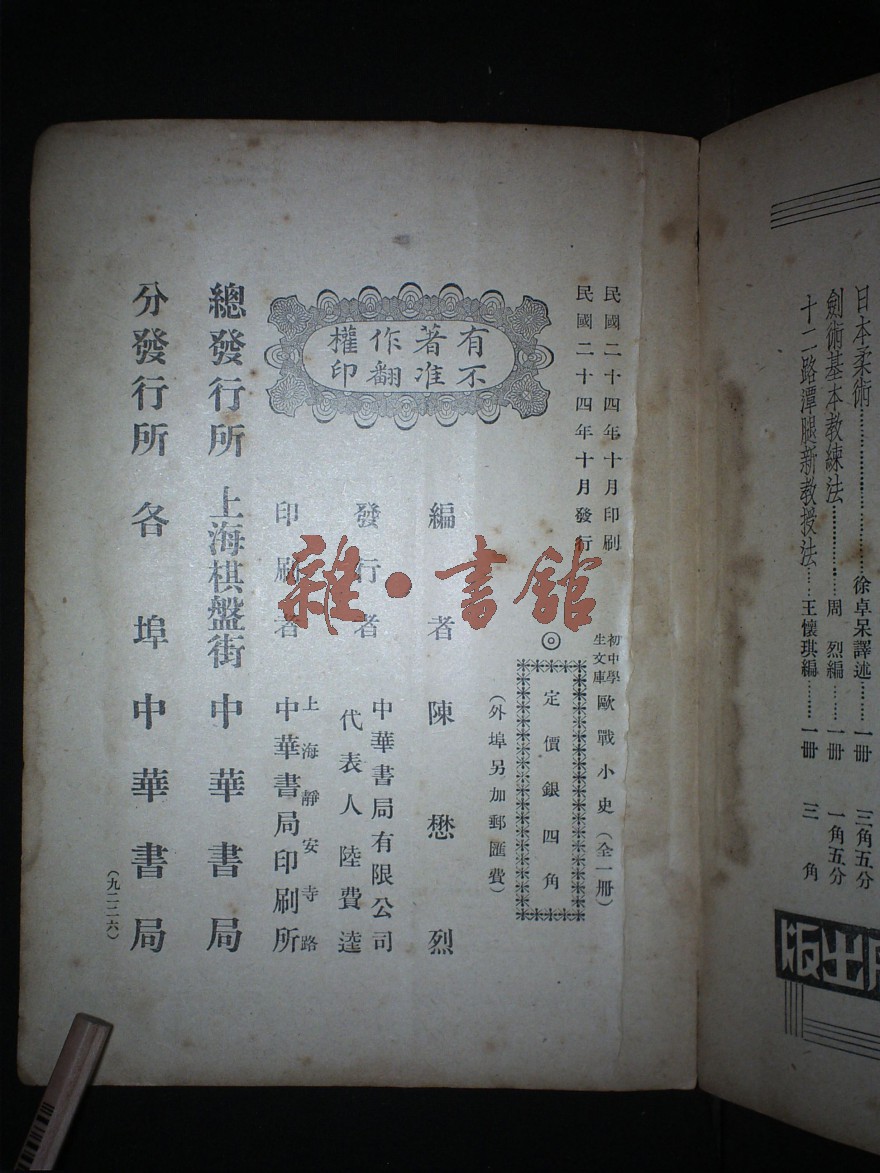 日本柔術……徐卓呆譯述……一冊 三角五分
劍術基本敎練法……周 烈編……一冊 一角五分
十二路潭腿新敎授法……王懷琪編……一冊 三 角
版出
民國二十四年十月印刷
民國二十四年十月發行
初中學生文庫 歐戰小史(全一冊)
◎定價銀四角
(外埠另加郵匯費)
有不著准作翻權印
編者 陳懋烈
發行者 中華書局有限公司
代表人陸費逵
印刷者 上海靜安寺路
中華書局印刷所
總發行所 上海棋盤街 中華書局
分發行所 各埠 中華書局
(九二二六)
雜·書館